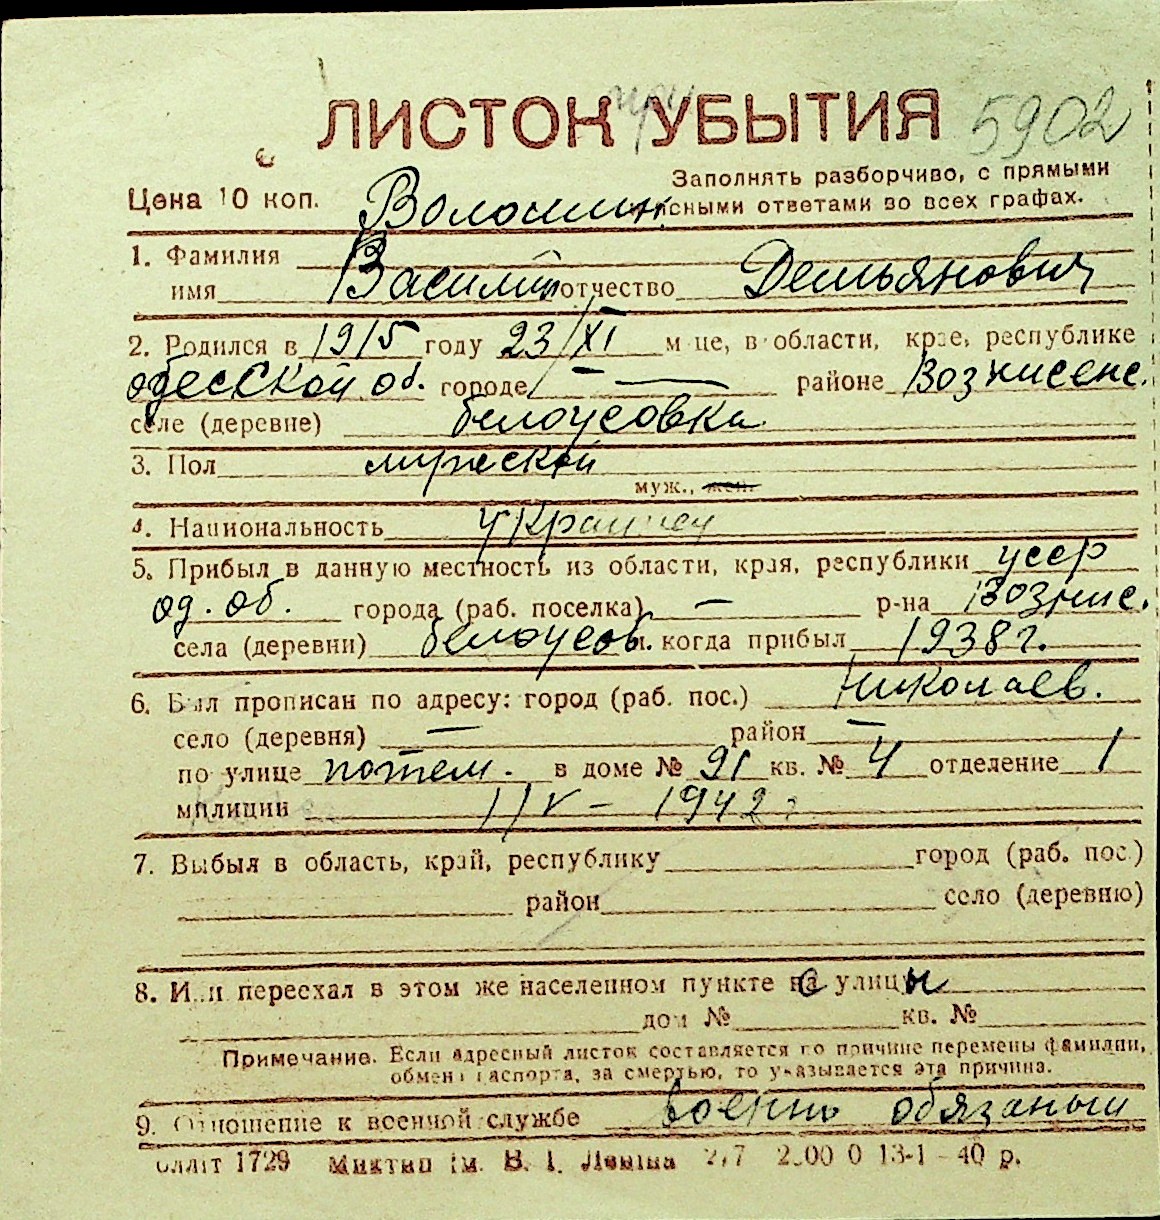 ЛИСТОК УБЫТИЯ 5902
Цена 10 коп. Заполнять разборчиво, с прямыми
Волошин ясными ответами во всех графах.
1. Фамилия
имя Василий отчество Демьянович
2. Родился в 1915 году 23/XI м-це, в области, крае, республике
одесской об. городе — районе Вознисенс.
селе (деревне) белоусовка
3. Пол мужской
муж., жен.
4. Национальность Украинец
5. Прибыл в данную местность из области, края, республики усср
од. об. города (раб. поселка) — р-на Вознис.
села (деревни) белоусов. когда прибыл 1938 г.
6. Был прописан по адресу: город (раб. пос.) Николаев.
село (деревня) — район —
по улице потем. в доме № 91 кв. № 4 отделение 1
милиции 1942
7. Выбыл в область, край, республику город (раб. пос.)
район село (деревню)
8. Или переехал в этом же населенном пункте с улицы
дом № кв. №
Примечание. Если адресный листок составляется по причине перемены фамилии,
обмена паспорта, за смертью, то указывается эта причина.
9. Отношение к военной службе военно обязаный
1729 им. В. І. Леніна 13-1 - 40 р.